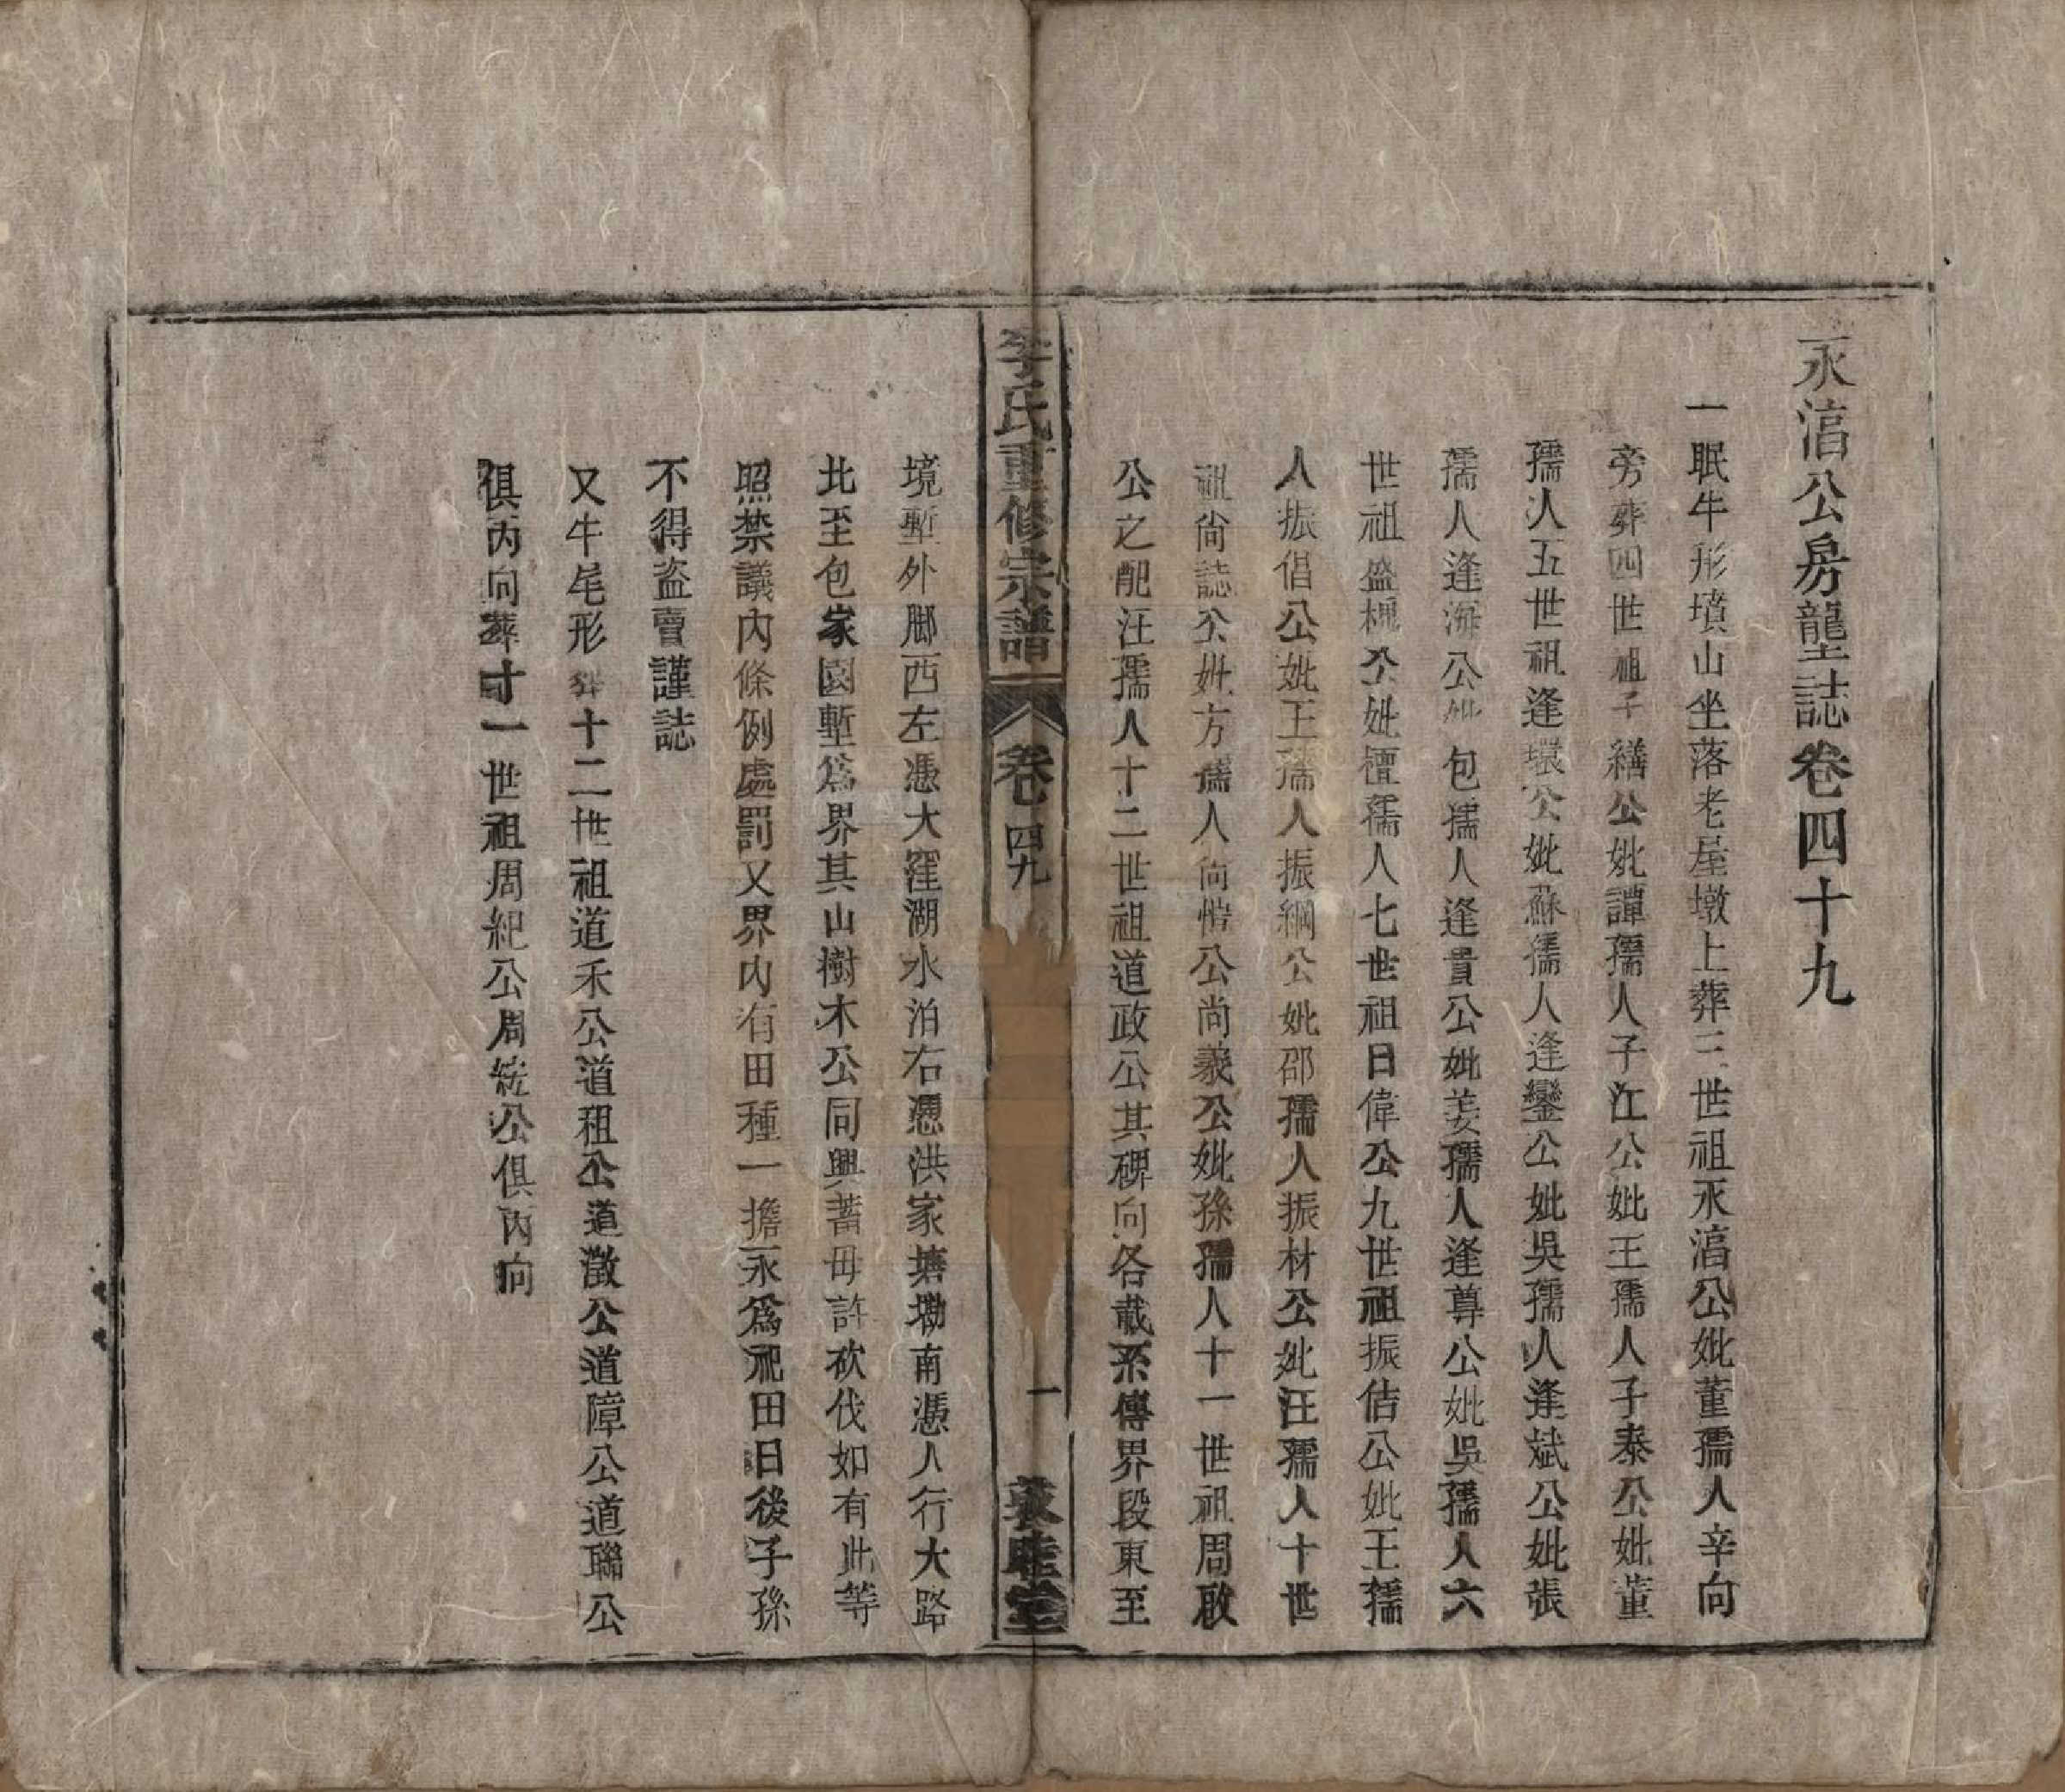 永湻公房壟誌卷四十九
一眠牛形墳山坐落老屋墩上葬三世祖永湻公妣董孺人辛向
旁葬四世祖子繕公妣譚孺人子江公妣王孺人子泰公妣董
孺人五世祖逢環公妣蘇孺人逢鑾公妣吳孺人逢斌公妣張
孺人逢海公妣包孺人逢貴公妣姜孺人逢尊公妣吳孺人六
世祖盛槐公妣檀孺人七世祖日偉公九世祖振佶公妣王孺
人振倡公妣王孺人振綱公妣邵孺人振材公妣汪孺人十世
祖尙誌公妣方孺人尙愷公尚義公妣孫孺人十一世祖周啟
公之配汪孺人十二世祖道政公其碑向各載系傳界段東至
李氏重修宗譜 卷四九 一 敦睦堂
境塹外脚西左憑大窪湖水泊右憑洪家塘塝南憑人行大路
北至包家園塹爲界其山樹木公同興蓄毋許砍伐如有此等
照禁議內條例處罰又界內有田種一擔永爲祀田日後子孫
不得盜賣謹誌
又牛尾形葬十二世祖道禾公道租公道徵公道障公道聯公
俱丙向葬十一世祖周紀公周統公俱丙向